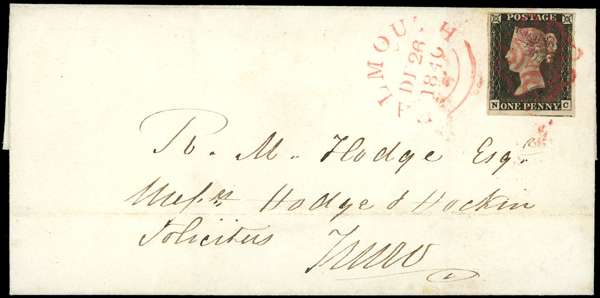 LMOUTH
D 28
1840
POSTAGE
N ONE PENNY C
R. M. Hodge Esqr
Messrs Hodge & Hockin
Solicitors Truro